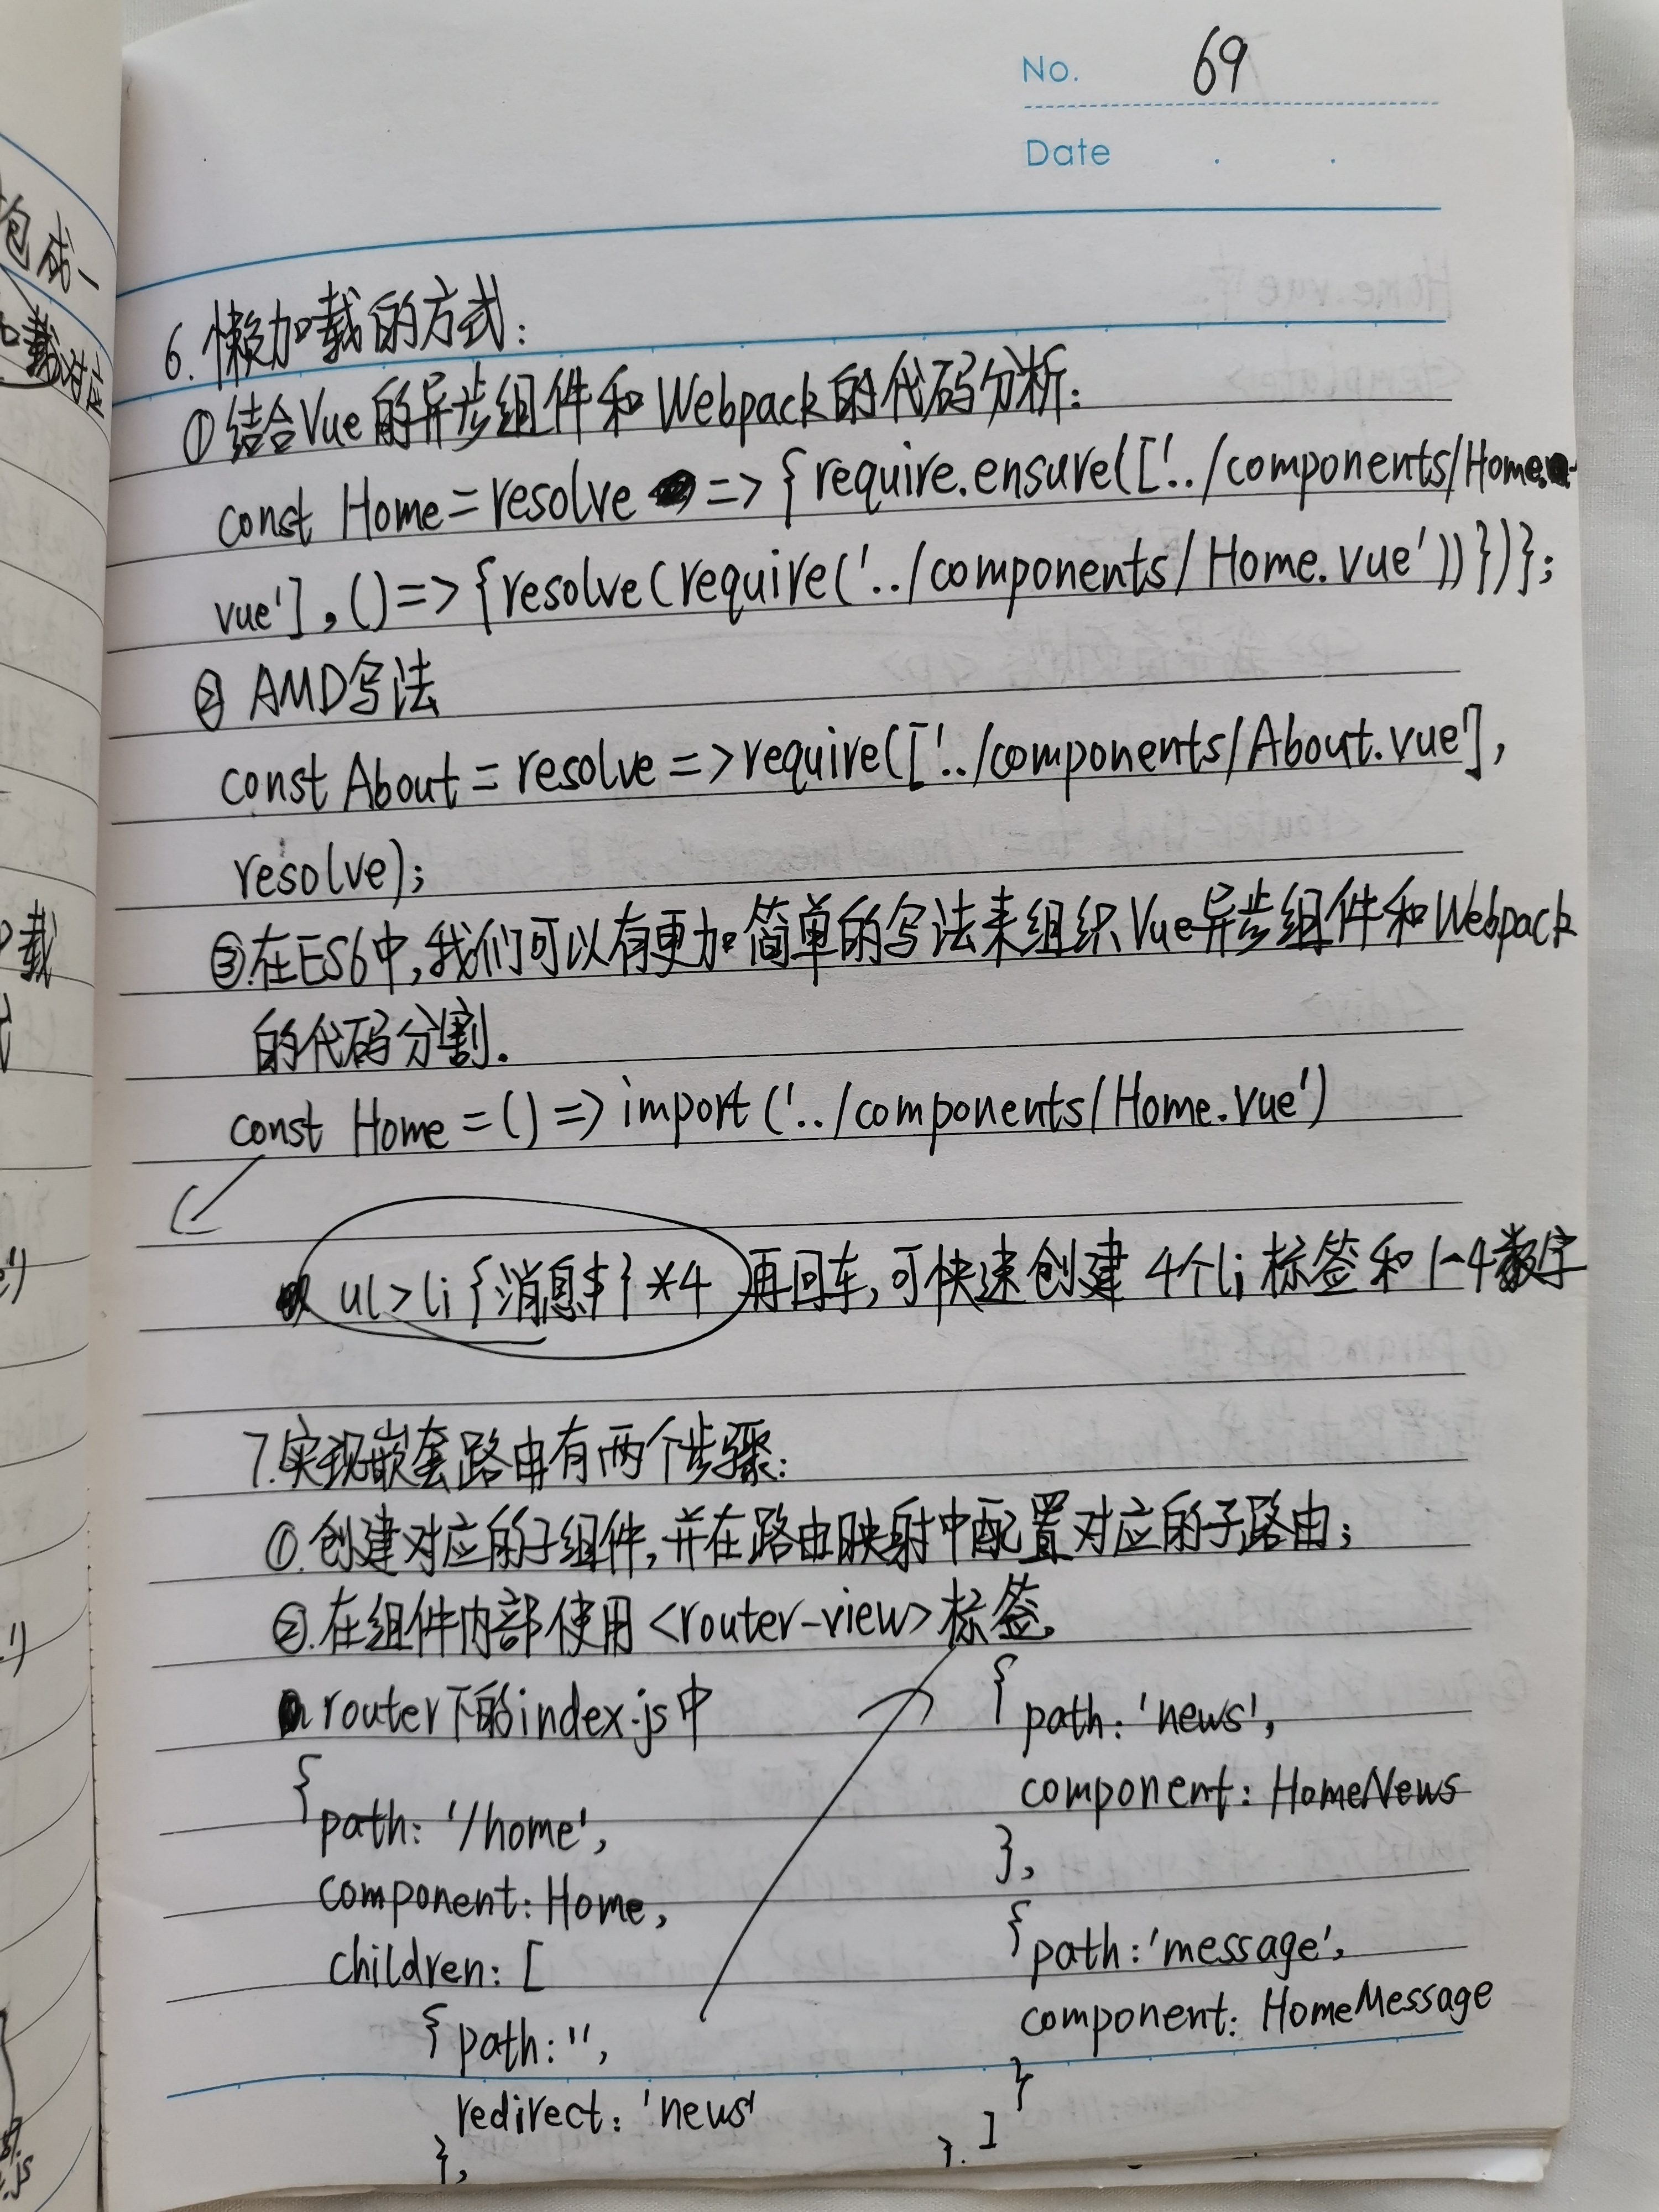 No. 69
Date
包成一
载对应
载
6. 懒加载的方式:
①结合Vue的异步组件和Webpack的代码分析:
const Home=resolve => {require.ensure(['../components/Home.
vue'],()=>{resolve(require('../components/Home.vue'))})};
② AMD写法
const About = resolve =>require(['../components/About.vue'],
resolve);
③.在ES6中,我们可以有更加简单的写法来组织Vue异步组件和Webpack
的代码分割.
const Home =()=>import('../components/Home.vue')
ul>li{消息$}*4 再回车,可快速创建4个li标签和1-4数字
7.实现嵌套路由有两个步骤:
①.创建对应的子组件,并在路由映射中配置对应的子路由;
②.在组件内部使用<router-view>标签.
router下的index.js中
{
path: '/home',
component: Home,
children: [
{path:'',
redirect: 'news'
},
{
path: 'news',
component: HomeNews
},
{
path:'message',
component: HomeMessage
}
]
}.
.js